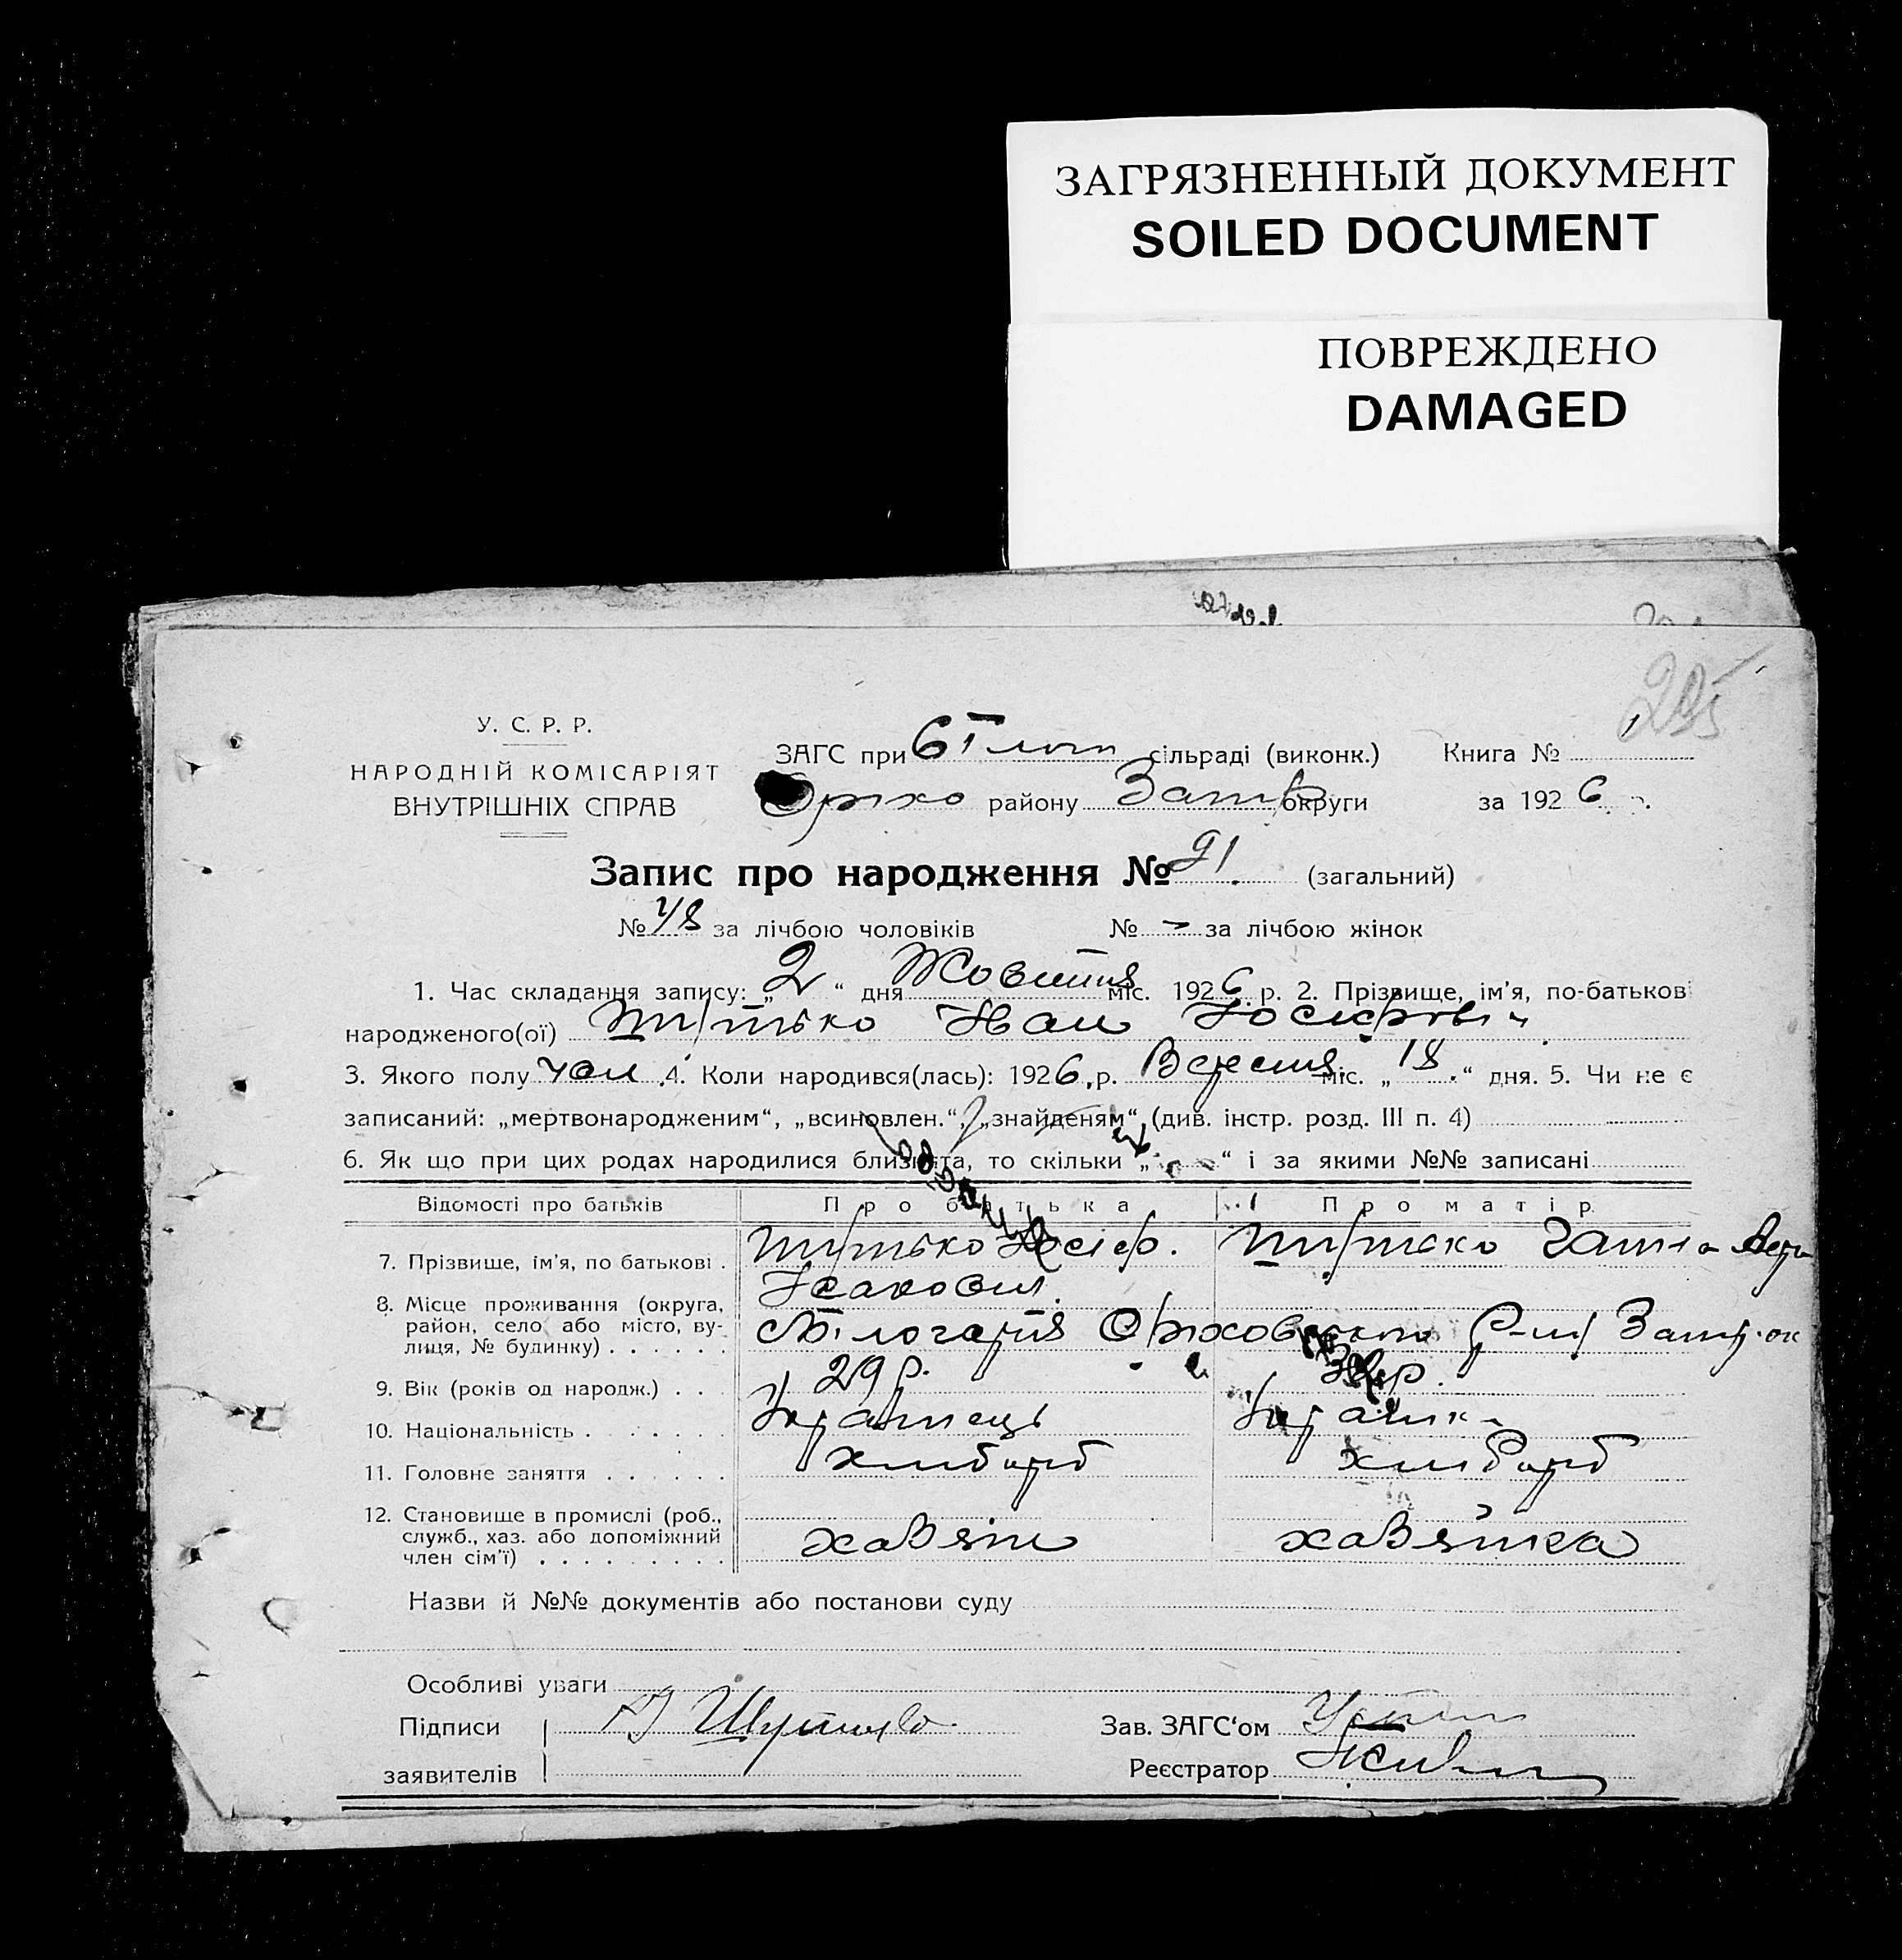 ЗАГРЯЗНЕННЫЙ ДОКУМЕНТ
SOILED DOCUMENT
ПОВРЕЖДЕНО
DAMAGED
У. С. Р. Р.
НАРОДНІЙ КОМІСАРІЯТ
ВНУТРІШНІХ СПРАВ
ЗАГС при сільраді (виконк.) Книга №
району округи за 1926 р.
Запис про народження № 91 (загальний)
№ 48 за лічбою чоловіків № – за лічбою жінок
1. Час складання запису: „2“ дня Жовтня міс. 1926 р. 2. Прізвище, ім'я, по-батьков
народженого(ої) Шутько Іван
3. Якого полу чол. 4. Коли народився(лась): 1926 р. Вересня міс. „18“ дня. 5. Чи не є
записаний: „мертвонародженим“, „всиновлен.“, „знайденям“, (див. інстр. розд. III п. 4)
6. Як що при цих родах народилися близнята, то скільки „ “ і за якими №№ записані
Відомості про батьків Про батька Про матір
7. Прізвище, ім'я, по батькові . Шутько Йосіф. Шутько Ганна
Ісакович
8. Місце проживання (округа,
район, село або місто, ву-
лиця, № будинку) . . . . . .
9. Вік (років од народж.) . . . 29 р.
10. Національність . . . . . . Українець Українка
11. Головне заняття . . . . . . хлібороб хлібороб
12. Становище в промислі (роб.,
служб., хаз. або допоміжний
член сім'ї) . . . . . . . . . хазяїн хазяйка
Назви й №№ документів або постанови суду
Особливі уваги
Підписи Шутько Зав. ЗАГС'ом
заявителів Реєстратор